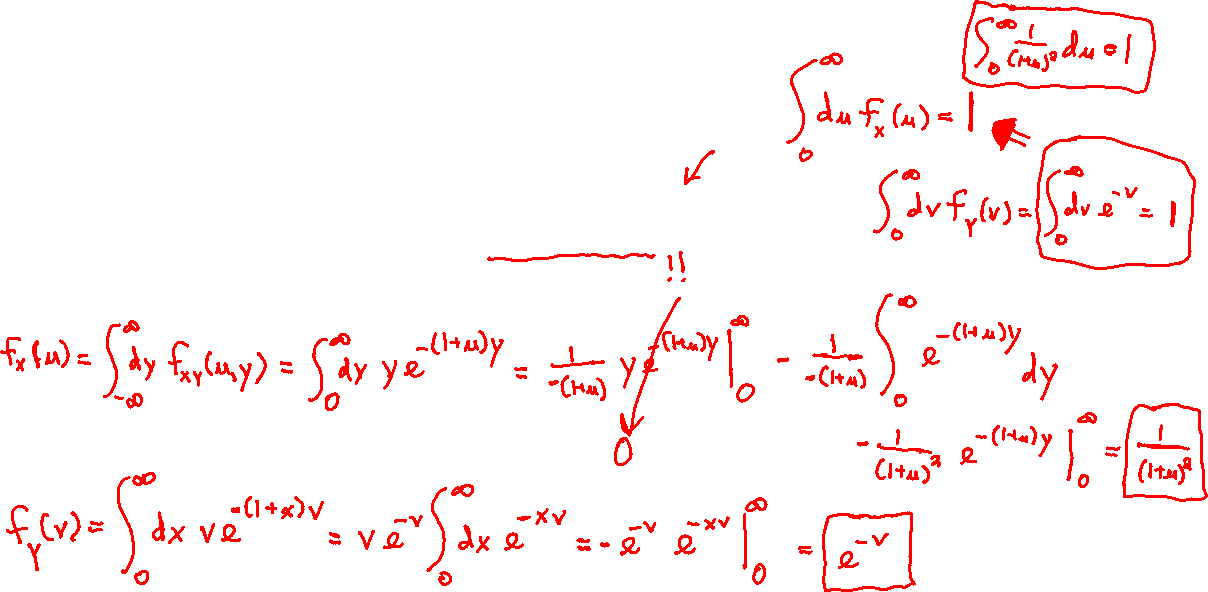 ∫₀^∞ 1/(1+u)² du = 1
∫₀^∞ du f_X(u) = 1
∫₀^∞ dv f_Y(v) = ∫₀^∞ dv e^{-v} = 1
!!
f_X(u) = ∫_{-∞}^∞ dy f_{XY}(u,y) = ∫₀^∞ dy y e^{-(1+u)y} = 1/-(1+u) y e^{-(1+u)y} |₀^∞ - 1/-(1+u) ∫₀^∞ e^{-(1+u)y} dy
0
- 1/(1+u)² e^{-(1+u)y} |₀^∞ = 1/(1+u)²
f_Y(v) = ∫₀^∞ dx v e^{-(1+x)v} = v e^{-v} ∫₀^∞ dx e^{-xv} = - e^{-v} e^{-xv} |₀^∞ = e^{-v}